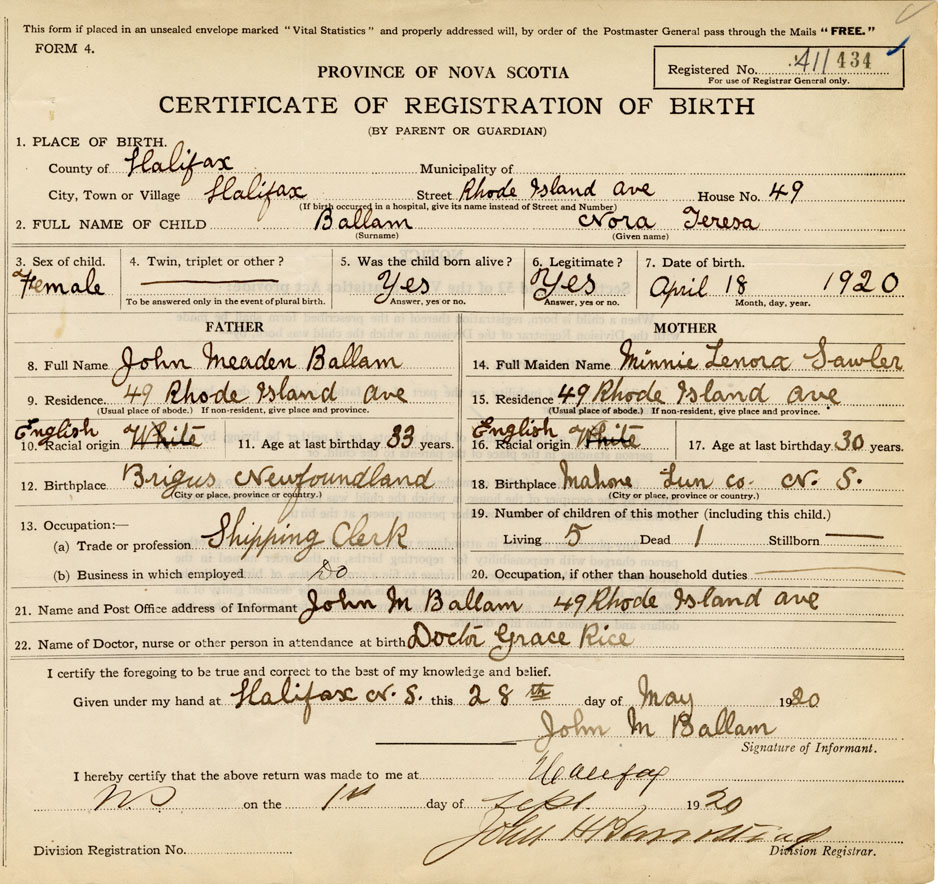 This form if placed in an unsealed envelope marked "Vital Statistics" and properly addressed will, by order of the Postmaster General pass through the Mails "FREE."
FORM 4.
Registered No. 411434
For use of Registrar General only.
PROVINCE OF NOVA SCOTIA
CERTIFICATE OF REGISTRATION OF BIRTH
(BY PARENT OR GUARDIAN)
1. PLACE OF BIRTH.
County of Halifax Municipality of
City, Town or Village Halifax Street Rhode Island Ave House No. 49
(If birth occurred in a hospital, give its name instead of Street and Number)
2. FULL NAME OF CHILD Ballam Nora Teresa
(Surname) (Given name)
3. Sex of child. 4. Twin, triplet or other? 5. Was the child born alive? 6. Legitimate? 7. Date of birth.
Female Yes Yes April 18 1920
To be answered only in the event of plural birth. Answer, yes or no. Answer, yes or no. Month, day, year.
FATHER MOTHER
8. Full Name John Meaden Ballam 14. Full Maiden Name Minnie Lenora Sawler
9. Residence 49 Rhode Island Ave 15. Residence 49 Rhode Island Ave
(Usual place of abode.) If non-resident, give place and province. (Usual place of abode.) If non-resident, give place and province.
English English
10. Racial origin White 11. Age at last birthday 33 years. 16. Racial origin White 17. Age at last birthday 30 years.
12. Birthplace Brigus Newfoundland 18. Birthplace Mahone Lun co. N. S.
(City or place, province or country.) (City or place, province or country.)
13. Occupation:— 19. Number of children of this mother (including this child.)
(a) Trade or profession Shipping Clerk Living 5 Dead 1 Stillborn
(b) Business in which employed Do 20. Occupation, if other than household duties
21. Name and Post Office address of Informant John M Ballam 49 Rhode Island ave
22. Name of Doctor, nurse or other person in attendance at birth Doctor Grace Rice
I certify the foregoing to be true and correct to the best of my knowledge and belief.
Given under my hand at Halifax N. S. this 28th day of May 1920
John M Ballam
Signature of Informant.
I hereby certify that the above return was made to me at Halifax
NS on the 1st day of Sept. 1920
John H
Division Registration No. Division Registrar.